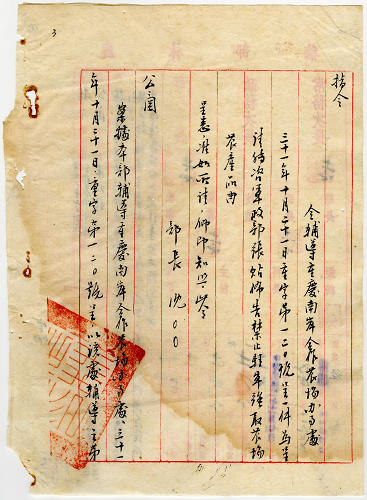 指令
令輔導重慶南岸合作農場办事處
三十一年十月二十一日重字第一二〇號呈一件為呈
請轉咨軍政部張貼佈告禁止駐軍強取農場
農產品由
呈悉准如所請仰即知照此令
部長沈〇〇
公函
案據本部輔導重慶南岸合作農場办事處三十一
年十月二十一日重字第一二〇號呈以該處輔導之第